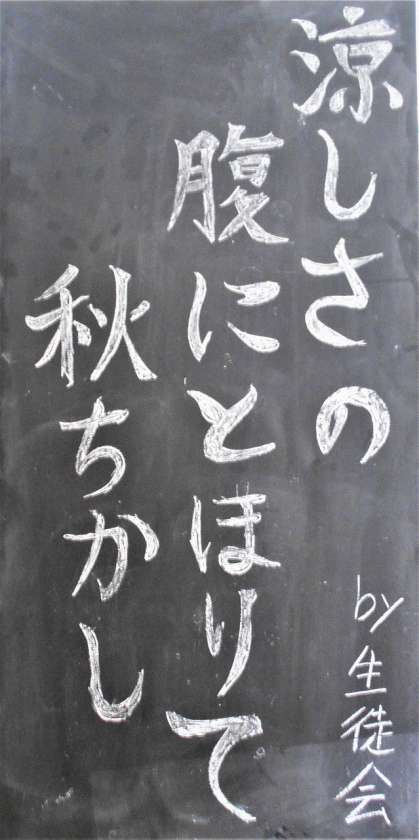 涼しさの
腹にとほりて
秋ちかし
by生徒会